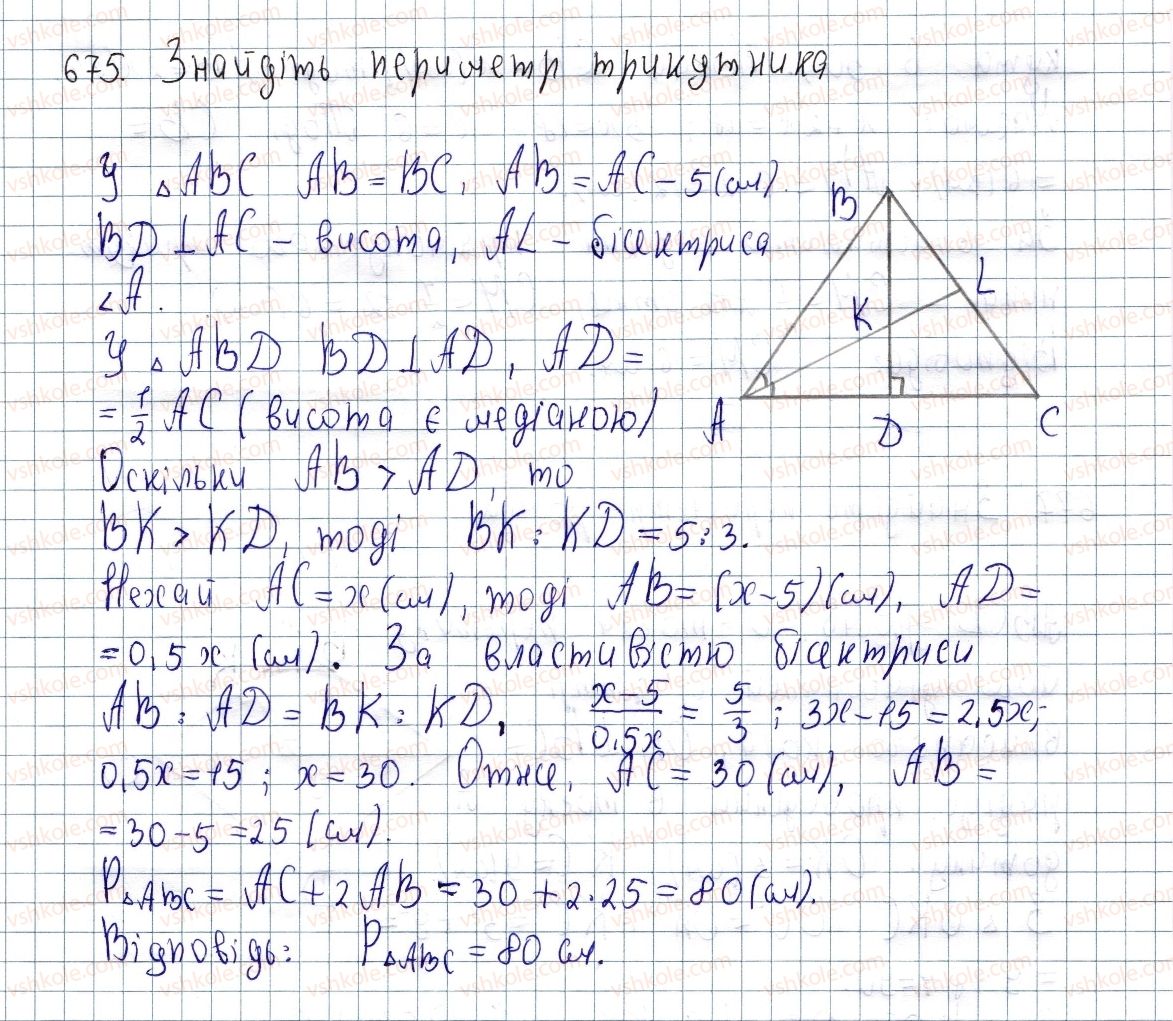 675. Знайдіть периметр трикутника
У △ABC AB = BC, AB = AC - 5 (см).
BD ⊥ AC - висота, AL - бісектриса
∠A.
У △ABD BD ⊥ AD, AD =
= 1/2 AC (висота є медіаною)
Оскільки AB > AD, то
BK > KD, тоді BK : KD = 5 : 3.
Нехай AC = x (см), тоді AB = (x - 5) (см), AD =
= 0,5x (см). За властивістю бісектриси
AB : AD = BK : KD, (x - 5)/(0,5x) = 5/3; 3x - 15 = 2,5x;
0,5x = 15; x = 30. Отже, AC = 30 (см), AB =
= 30 - 5 = 25 (см).
P△ABC = AC + 2AB = 30 + 2·25 = 80 (см).
Відповідь: P△ABC = 80 см.
B
L
K
A
D
C
vshkole.com